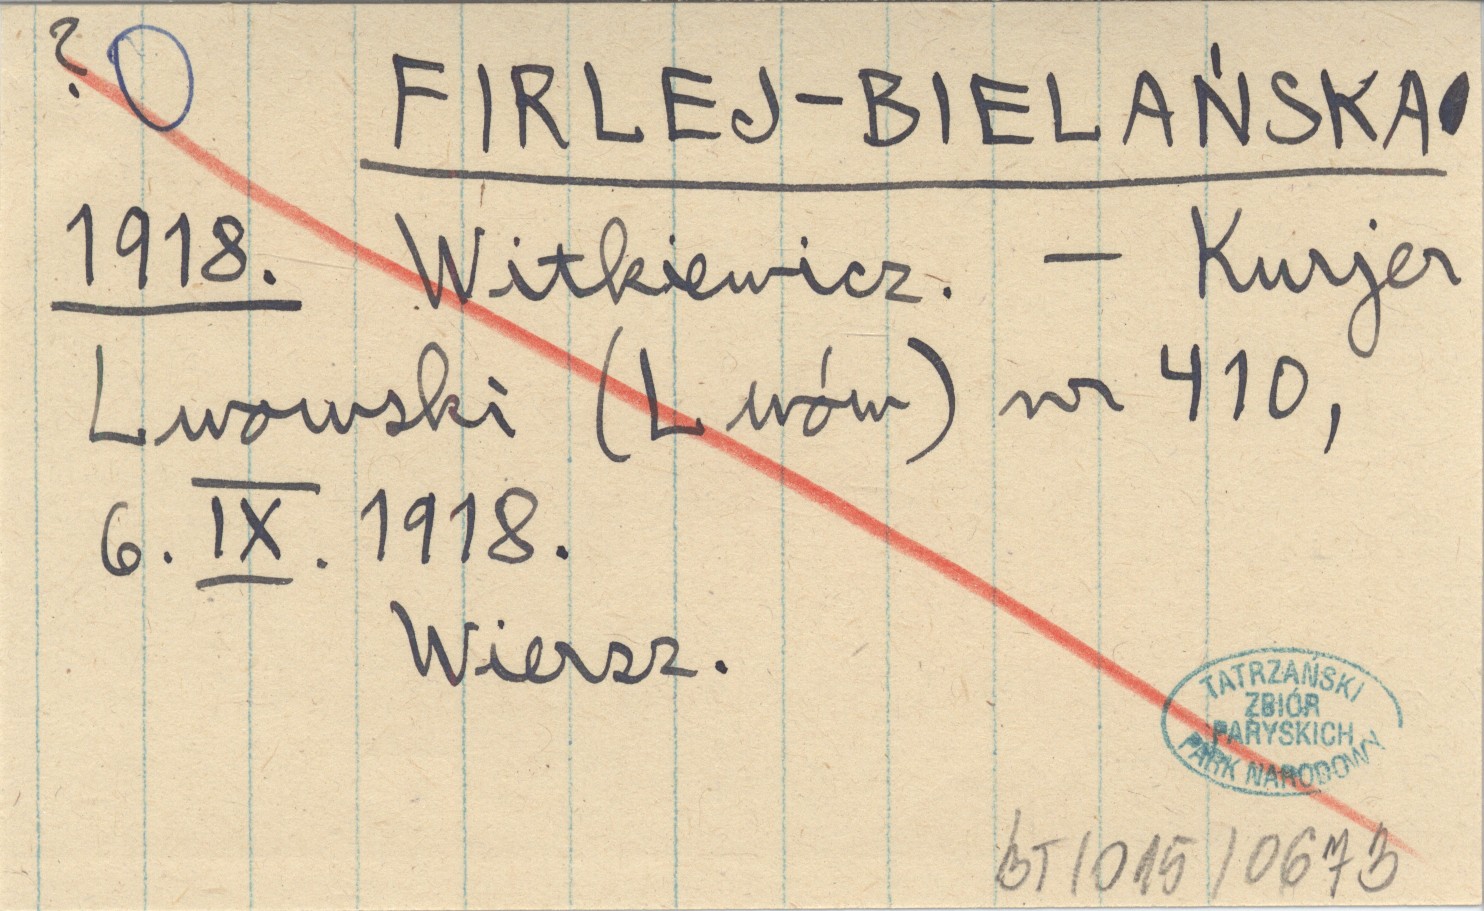 ?
FIRLEJ-BIELAŃSKA
1918. Witkiewicz. — Kurjer
Lwowski (Lwów) nr 410,
6. IX. 1918.
Wiersz.
TATRZAŃSKI
ZBIÓR
PARYSKICH
PARK NARODOWY
BT/015/0673